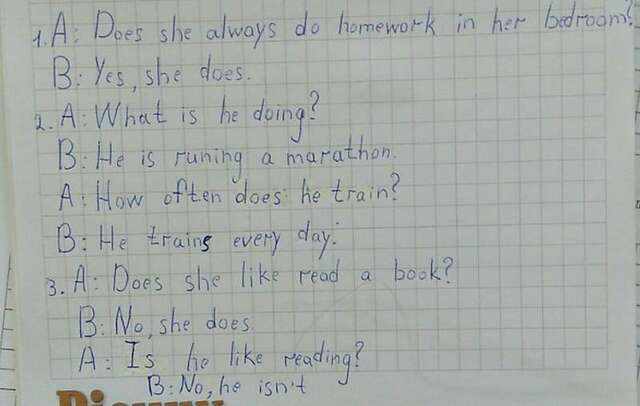 1. A: Does she always do homework in her bedroom?
B: Yes, she does.
2. A: What is he doing?
B: He is runing a marathon.
A: How often does he train?
B: He trains every day.
3. A: Does she like read a book?
B: No, she does.
A: Is he like reading?
B: No, he isn't